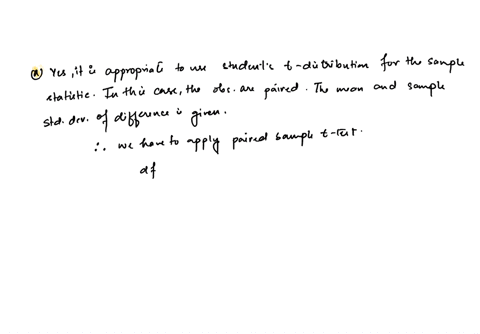 (a) Yes, it is appropriate to use student's t-distribution for the sample
statistic. In this case, the obs. are paired. The mean and sample
std. dev. of difference is given.
∴ we have to apply paired sample t-test.
df